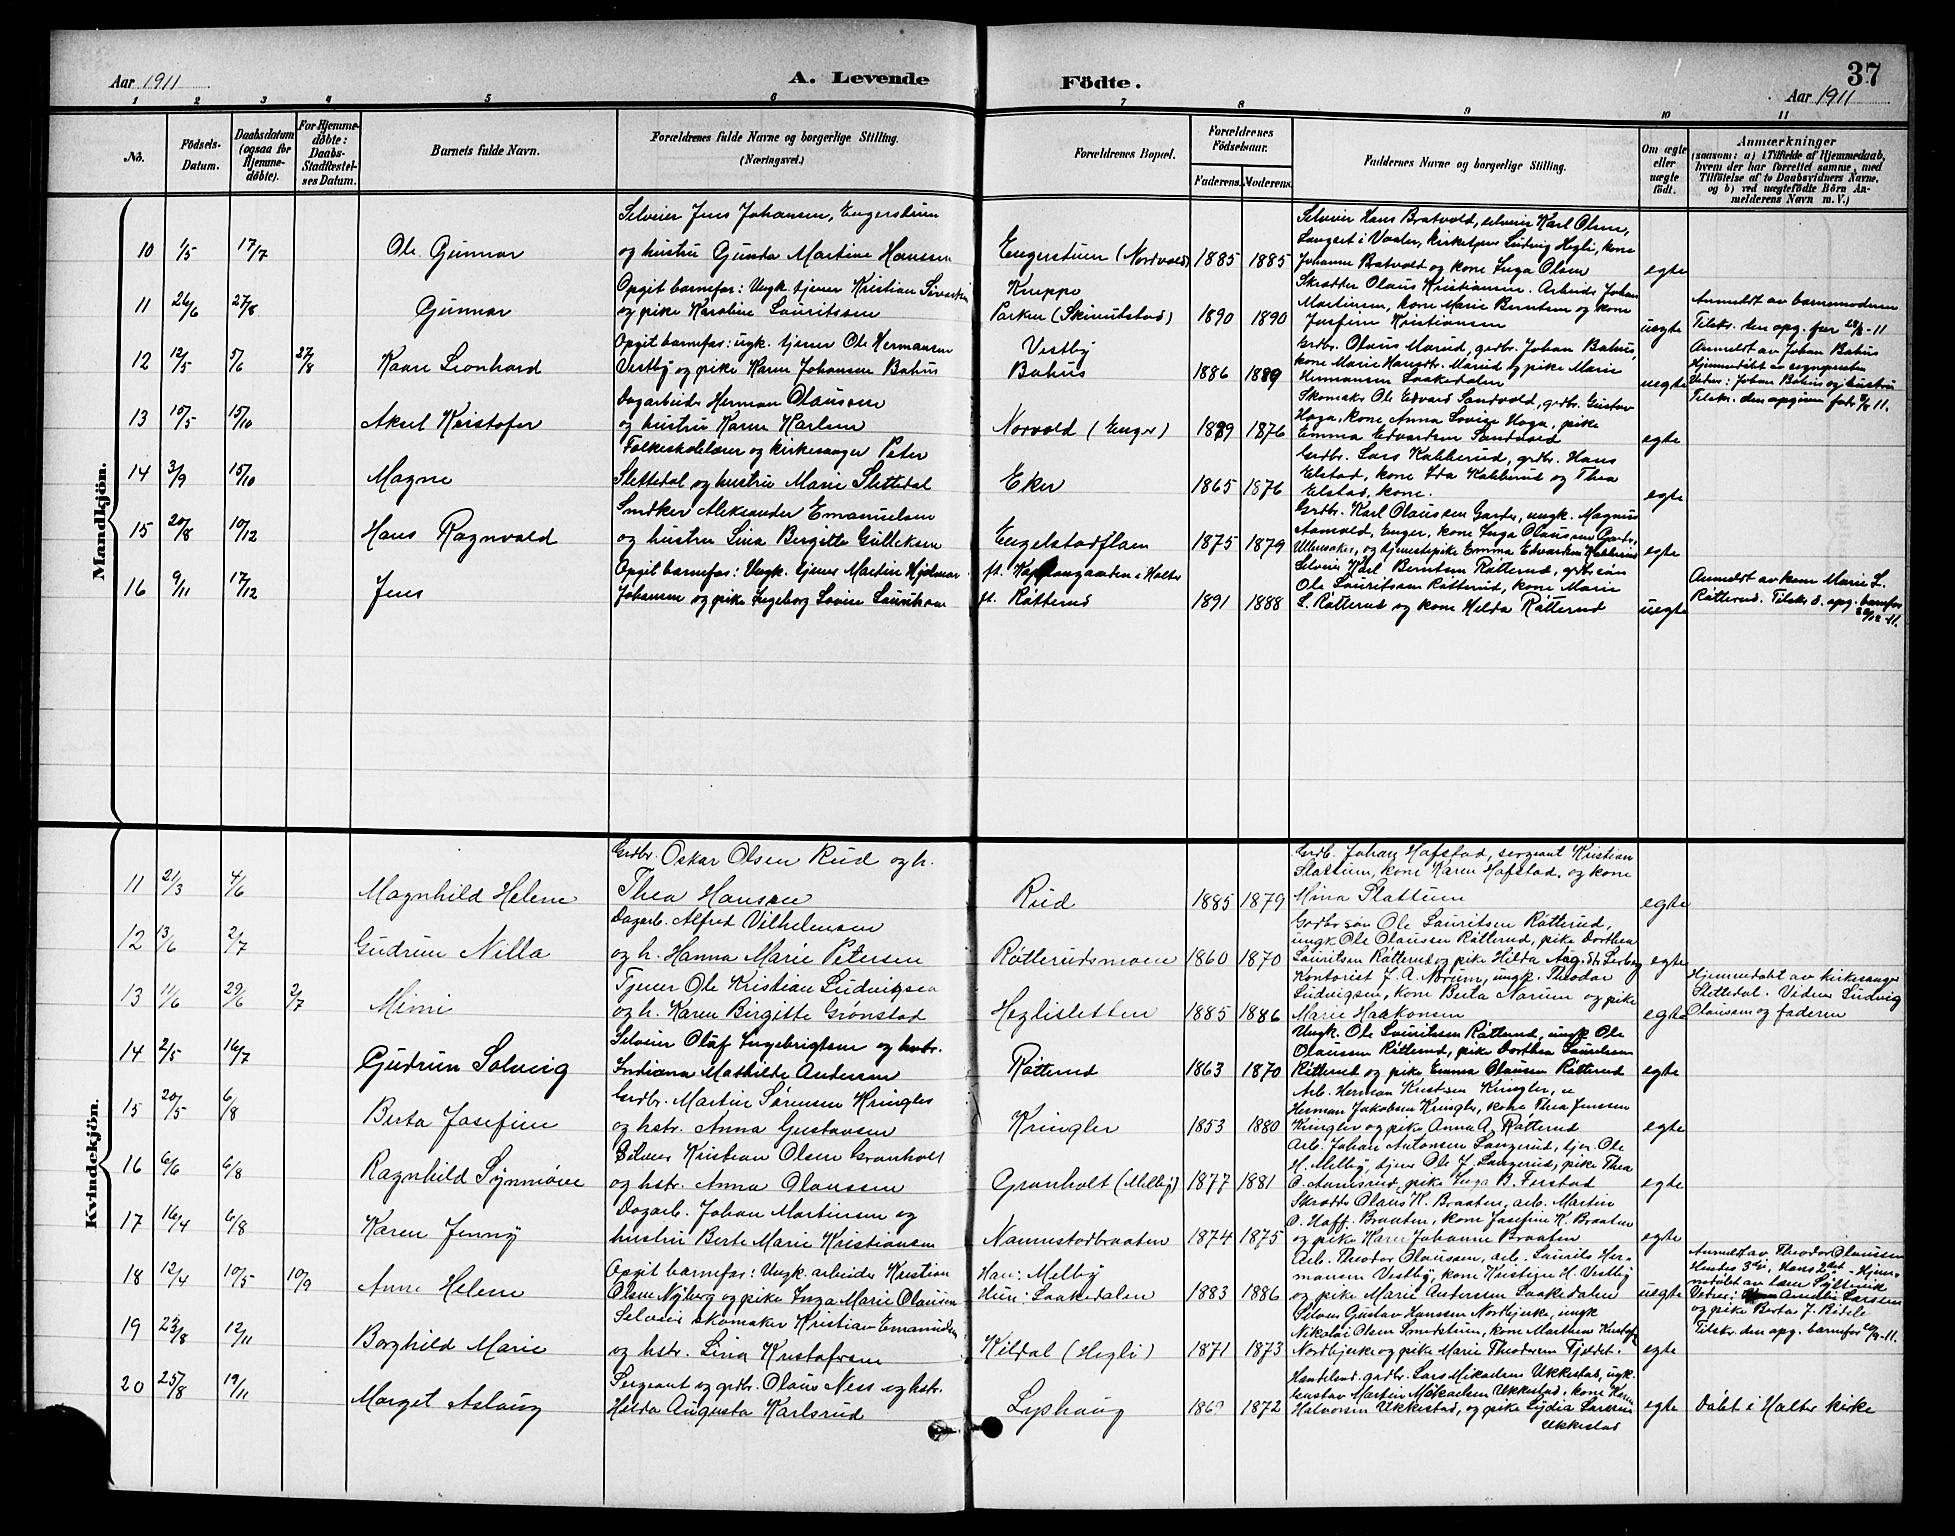 Aar 1911
A. Levende
Födte.
37
Aar 1911
1 2 3 4 5 6 7 8 9 10 11
No.
Födsels-
Datum.
Daabsdatum
(ogsaa for
Hjemme-
døbte).
For Hjemme-
døbte:
Daabs-
Stadfestel-
ses Datum.
Barnets fulde Navn.
Forældrenes fulde Navne og borgerlige Stilling.
(Næringsvei.)
Forældrenes Bopæl.
Forældrenes
Födselsaar.
Faderens. Moderens.
Faddernes Navne og borgerlige Stilling.
Om ægte
eller
uægte
født.
Anmærkninger
(saasom: a) i Tilfælde af Hjemmedaab,
hvem der har forrettet samme, med
Tilföielse af to Daabsvidners Navne,
og b) ved uægtefödte Börn An-
melderens Navn m. V.)
Mandkjön.
10 1/5 17/7 Ole Gunnar
Selveier Jens Johansen, Engerstuen
og hustru Gunda Martine Hansen
Engerstuen (Nordvold) 1885 1885
Selveier Hans Bratvold, selveier Karl Olsen,
Langset i Vaaler, kirketjener Ludvig Hegli, kone
Johanne Bratvold og kone Inga Olsen
egte
11 26/6 27/8 Gunnar
Opgit barnefar: Ungk. tjener Kristian Sivertsen
og pike Karoline Lauritssen
Kneppe
Parken (Skinulstad) 1890 1890
Skrædder Olaus Kristiansen. Arbeider Johan
Martinsen, kone Marie Berntsen og kone
Josefine Kristiansen
uegte
Anmeldt av barnemoderen
Tilskr. den opg. far 28/8-11
12 12/5 5/6 27/8 Kaare Leonhard
Opgit barnefar: ugk. tjener Ole Hermansen
Vestby og pike Karen Johansen Bahus
Vestby
Bahus 1886 1889
Grdbr. Olaus Marud, grdbr. Johan Bahus,
kone Marie Hansdtr. Marud og pike Marie
Hermansen Laakedalen
uegte
Anmeldt av Johan Bahus
Hjemmedøbt av sognepresten
Vidner: Johan Bahus og hustru
Tilskr. den opgivne fader 9/8 11.
13 10/5 15/10 Aksel Kristofer
Dagarbeider Herman Olaussen
og hustru Karen Karlsen
Norvold (Enger) 1879 1876
Skomaker Ole Edvard Sandvold, grdbr. Gustav
Haga, kone Anna Lovise Haga, pike
Emma Edvardsen Sandvold
egte
14 3/9 15/10 Magne
Folkeskolelærer og kirkesanger Peter
Slettedal og hustru Marie Slettedal
Eker 1865 1876
Grdbr. Lars Kabberud, grdbr. Hans
Elstad, kone Ida Kabberud og Thea
Elstad, kone.
egte
15 20/8 10/12 Hans Ragnvald
Smdker Aleksander Emanuelsen
og hustru Lina Birgitte Gulleksen
Engelstadflaen 1875 1879
Grdbr. Karl Olaussen Garder, ungk. Magnus
Aamold, Enger, kone Inga Olaussen Garder,
Ullensaker, og tjenestepike Emma Edvardsen Kabberud
egte
16 9/11 17/12 Jens
Opgit barnefar: Ungk. tjener Martin Hjelmar
Johansen og pike Ingeborg Lovise Lauritsen
ft. i Holter
ft. Røtterud 1891 1888
Selveier Karl Berntsen Røtterud, grdbrsøn
Ole Lauritsen Røtterud, kone Marie
L. Røtterud og kone Helda Røtterud
uegte
Anmeldt av kone Marie L.
Røtterud. Tilskr. d. opg. barnefar
20/12-11.
Kvindekjön.
11 21/3 4/6 Magnhild Helene
Grdbr. Oskar Olsen Rud og h.
Thea Hansen
Rud 1885 1879
Grdb. Johan Hafstad, sergeant Kristian
Slattum, kone Karen Hafstad, og kone
Mina Slattum
egte
12 13/6 2/7 Gudrun Nilla
Dagarb. Alfred Vilhelmsen
og h. Hanna Marie Petersen
Røtterudsmoen 1860 1870
Grdbrsøn Ole Lauritsen Røtterud,
ungk Ole Olaussen Røtterud, pike Dorthea
Lauritsen Røtterud og pike Hilda Aug.
egte
13 11/6 29/6 2/7 Mimi
Tjener Ole Kristian Ludvigsen
og h. Karen Birgitte Grønstad
Heglisletten 1885 1886
Kontorist J. A. Norum, ungk. Theodor
Ludvigsen, kone Berta Norum og pike
Marie Haakonsen
egte
Hjemmedøbt av kirkesanger
Slettedal. Vidner Ludvig
Olaussen og faderen
14 2/5 16/7 Gjudrun Solveig
Selveier Oluf Ingebrigtsen og hstr.
Indiana Mathilde Andersen
Røtterud 1863 1870
Ungk. Ole Lauritsen Røtterud, ungk Ole
Olaussen Røtterud, pike Dorthea Lauritsen
Røtterud og pike Emma Olaussen Røtterud
egte
15 20/5 6/8 Berta Josefine
Grdbr. Martin Sørensen Kringler
og hstr. Anna Gustavsen
Kringler 1853 1880
Arb. Herman Kristsen Kringler, e
Herman Jakobsen Kringler, kone Thea Jenssen
Kringler og pike Anna A. Røtterud
egte
16 6/6 6/8 Ragnhild Synnøve
Selveier Kristian Olsen Granholt
og hstr. Anna Olaussen
Granholt (Melby) 1877 1881
Arb. Johan Antonsen Langerud, tjen. Ole
H. Melby, tjener Ole J. Langerud, pike Thea
O. Aamesrud, pike Inga B. Ferstad
egte
17 16/4 6/8 Karen Jenny
Dagarb. Johan Martinsen og
hustru Berte Marie Kristiansen
Nannestadbraaten 1874 1875
Skrædder Olaus K. Braaten, arb. Martin
O. Hoff. Braaten, kone Josefine K. Braaten
og pike Karen Johanne Braaten
egte
18 12/4 10/5 10/9 Anne Helene
Opgit barnefar: Ungk. arbeider Kristian
Olsen Nyberg og pike Inga Marie Olaussen
Han: Melby
Hun: Laakedalen 1883 1886
Arb. Theodor Olaussen, arb. Laurits Her-
mansen Vestby, kone Kristine H. Vestby
og pike Marie Andersen Laakedalen
uegte
Anmeldt av Theodor Olaussen
Hendes 3die, Hans 2det - Hjem-
medøbt av lærer
Vidner: Amalie Larssen
og pike Berta J.
Tilskr. den opg. barnefar -11.
19 23/8 12/11 Borghild Marie
Selveier skomaker Kristian Emanuelsen
og hstr. Lina Kristofersen
Kildal (Hegli) 1871 1873
Selveier Gustav Hanssen Nordbjerke, ungk
Nikolai Olsen Smedstuen, kone Marthea Kristoff.
Nordbjerke og pike Marie Theodorsen Fjeldet.
egte
20 25/8 19/11 Marget Aslaug
Sergeant og grdbr. Olaus Ness og hstr.
Helda Augusta Karlsrud
Lyshaug 1869 1872
Handelsmd. grdbr. Lars Mikaelsen Ukkestad, ugk.
Gustav Martin Mikaelsen Ukkestad, kone Karen
Halvorsen Ukkestad, og pike Lydia Larssen
Ukkestad
egte
Døbt i Holter kirke